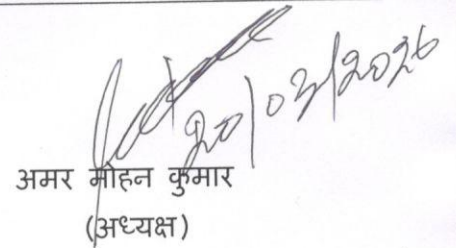 20/03/2026
अमर मोहन कुमार
(अध्यक्ष)